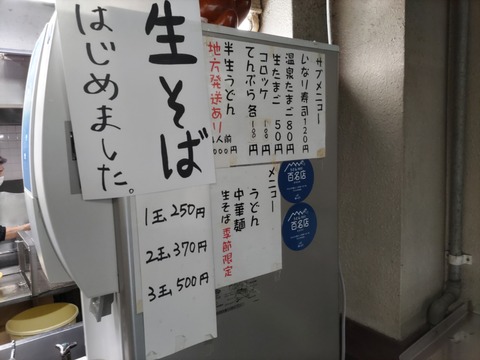 生そば
はじめました。
サブメニュー
いなり寿司120円
温泉たまご80円
生たまご50円
コロッケ
てんぷら各
半生うどん
地方発送あり
メニュー
うどん
中華麺
生そば季節限定
1玉250円
2玉370円
3玉500円
百名店
百名店